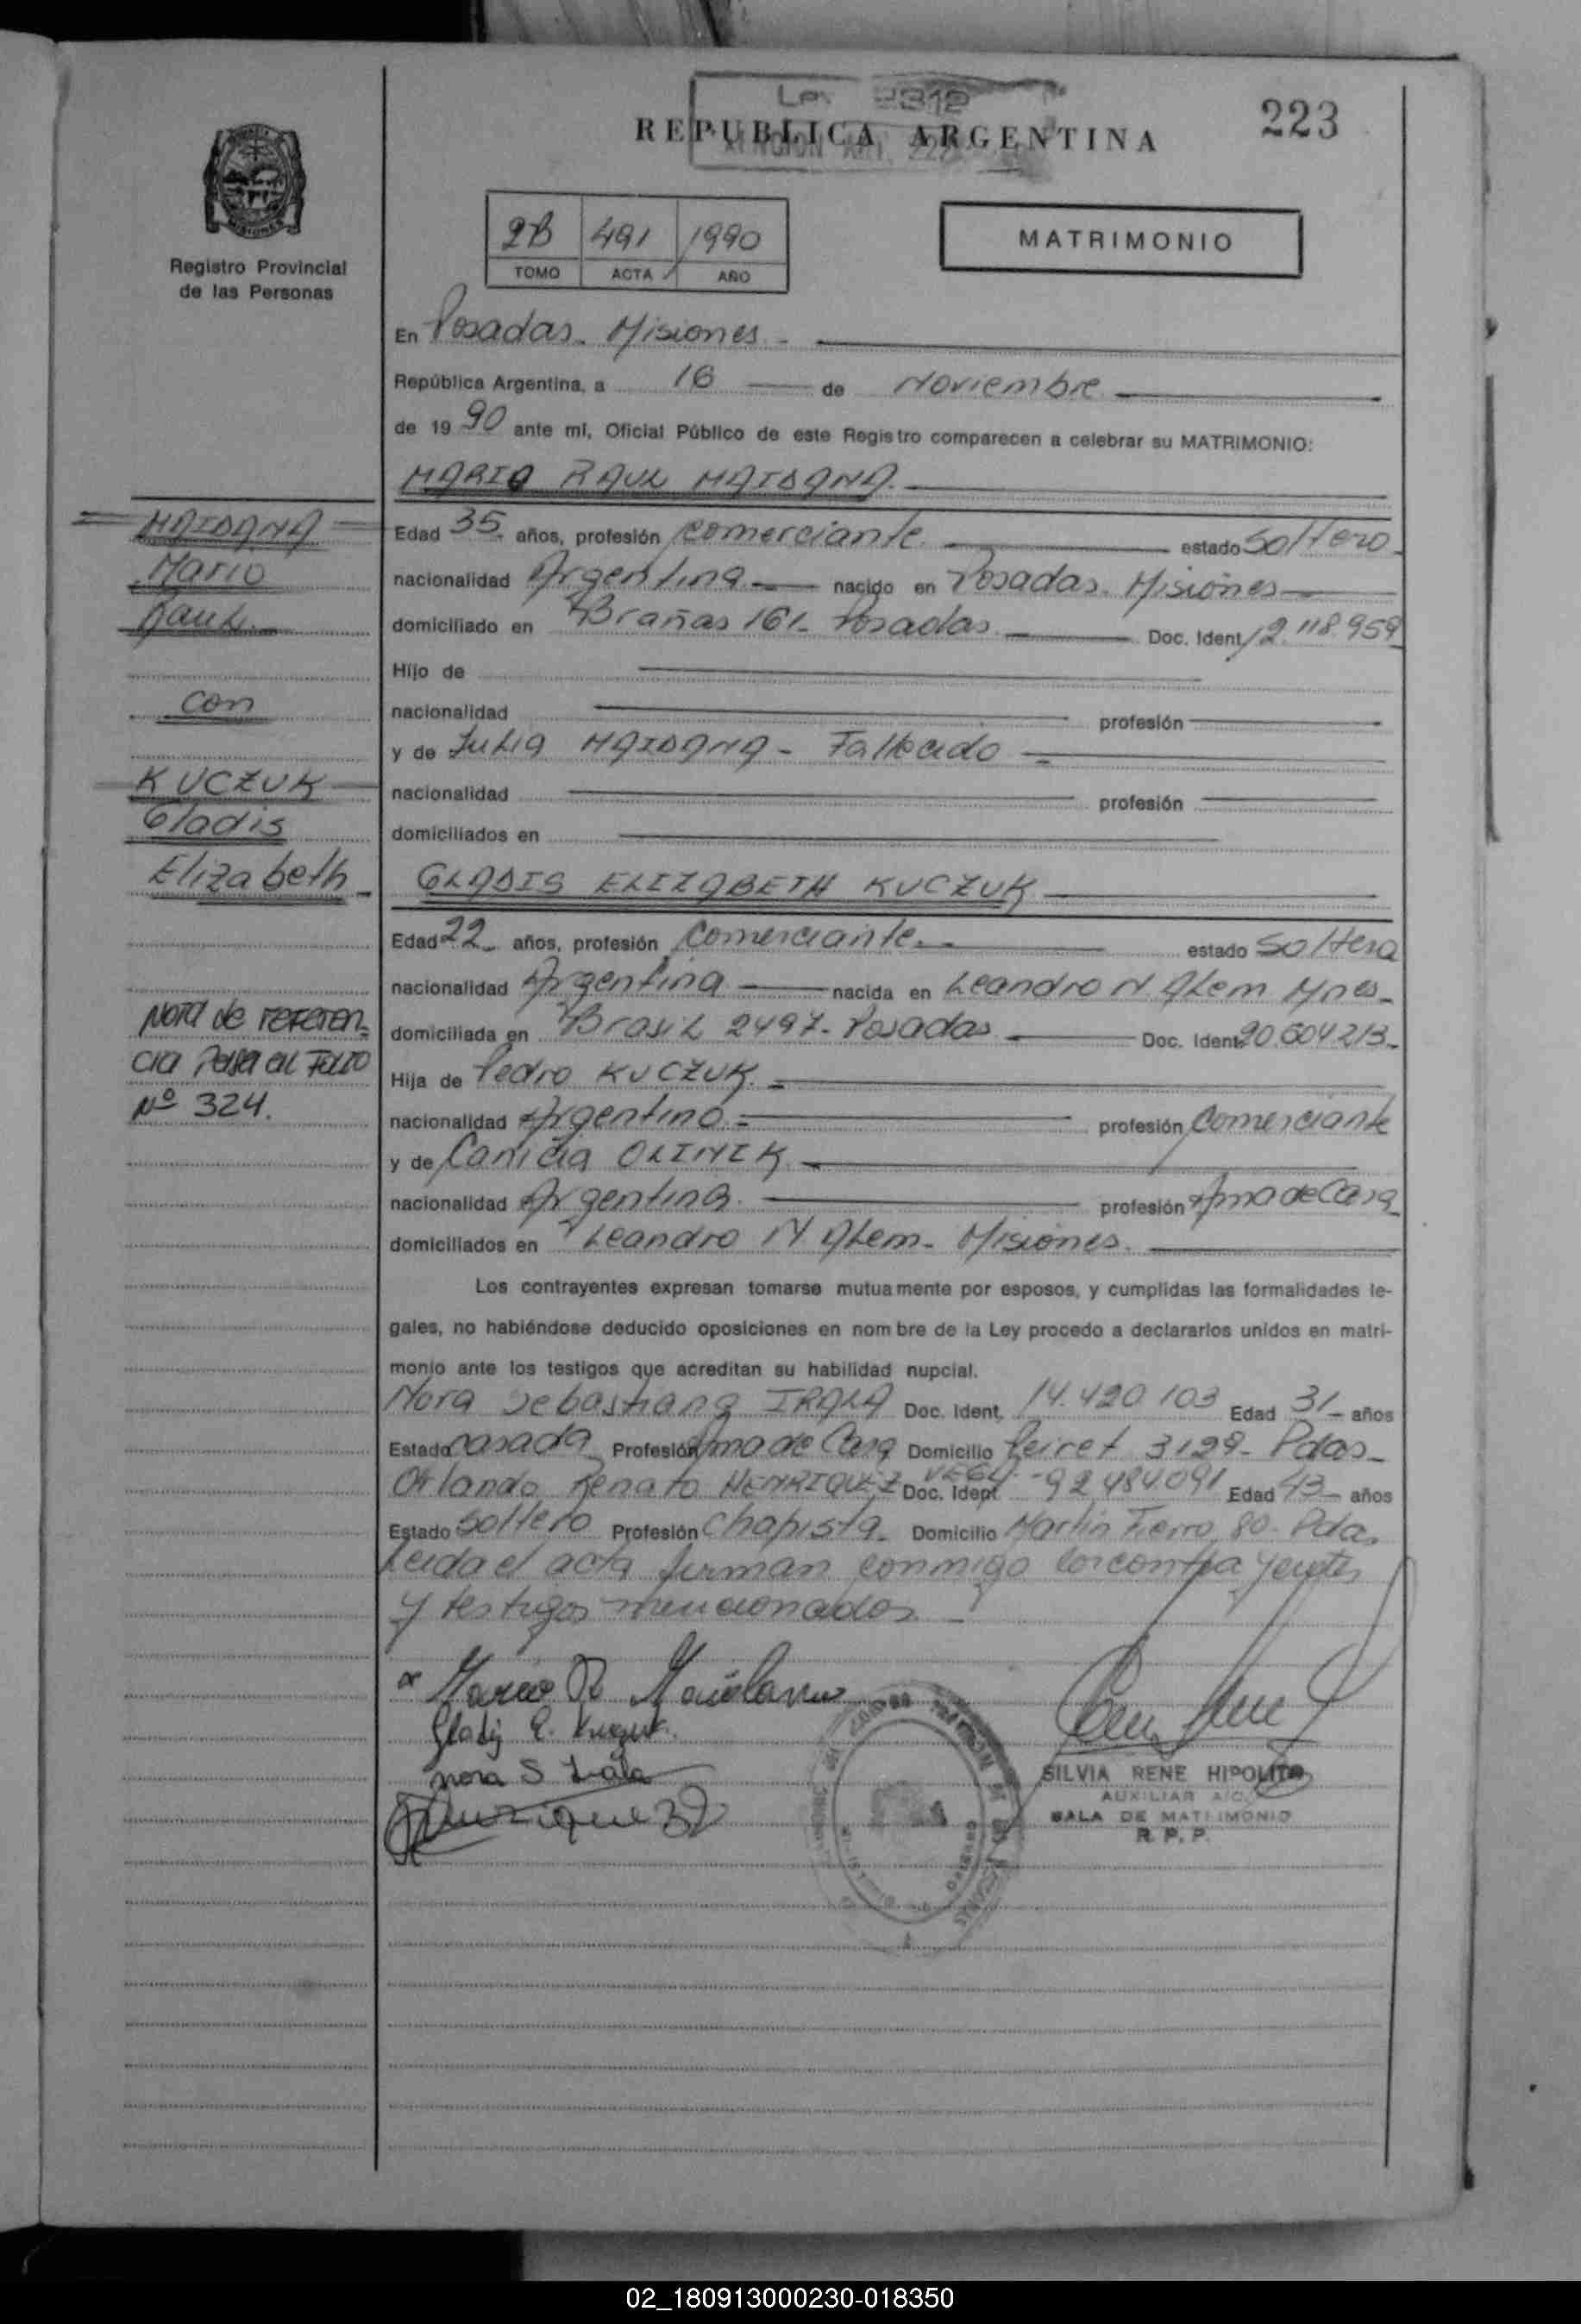 Ley 2312
REPUBLICA ARGENTINA
223
2B 491 1990
TOMO ACTA AÑO
MATRIMONIO
Registro Provincial
de las Personas
En Posadas - Misiones -
República Argentina, a 16 de Noviembre
de 19 90 ante mí, Oficial Público de este Registro comparecen a celebrar su MATRIMONIO:
MARIO RAUL MAIDANA.
Edad 35 años, profesión comerciante estado Soltero
nacionalidad Argentina nacido en Posadas. Misiones
domiciliado en Brañas 161 - Posadas Doc. Ident. 12.118.959
Hijo de
nacionalidad profesión
y de Julia MAIDANA - Fallecido
nacionalidad profesión
domiciliados en
GLADIS ELIZABETH KUCZUK
Edad 22 años, profesión Comerciante. estado Soltera
nacionalidad Argentina nacida en Leandro N Alem Mnes -
domiciliada en Brasil 2497 - Posadas Doc. Ident. 20.604.213 -
Hija de Pedro KUCZUK
nacionalidad Argentino profesión Comerciante
y de Canicia OLINIK
nacionalidad Argentina profesión Ama de Casa
domiciliados en Leandro N Alem - Misiones.
Los contrayentes expresan tomarse mutuamente por esposos, y cumplidas las formalidades le-
gales, no habiéndose deducido oposiciones en nombre de la Ley procedo a declararlos unidos en matri-
monio ante los testigos que acreditan su habilidad nupcial.
Nora Sebastiana IRALA Doc. Ident. 14.420.103 Edad 31 - años
Estado casada Profesión Ama de Casa Domicilio Peiret 3129 - Pdas -
Orlando Renato HENRIQUEZ Doc. Ident. 92.484.091 Edad 43 - años
Estado Soltero Profesión Chapista - Domicilio Martin Fierro 80 - Pdas
Leida el acta firman conmigo los contrayentes
y testigos mencionados -
MAIDANA
Mario
Raul.
con
KUCZUK
Gladis
Elizabeth -
Nota de referen-
cia Pasa al Folio
Nº 324.
Mario R Maidana
Gladis E. Kuczuk
Nora S Irala
Henriquez
SILVIA RENE HIPOLITO
AUXILIAR A/C
SALA DE MATRIMONIO
R. P. P.
02_180913000230-018350